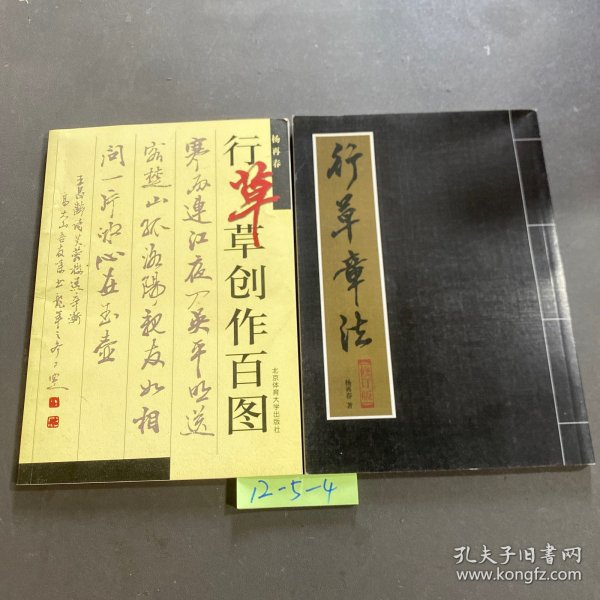 杨再春
行草
草创作百图
北京体育大学出版社
寒雨连江夜入吴平明送
客楚山孤洛阳亲友如相
问一片冰心在玉壶
行草章法
修订版
杨再春 著
12-5-4
孔夫子旧书网
www.kongfz.com